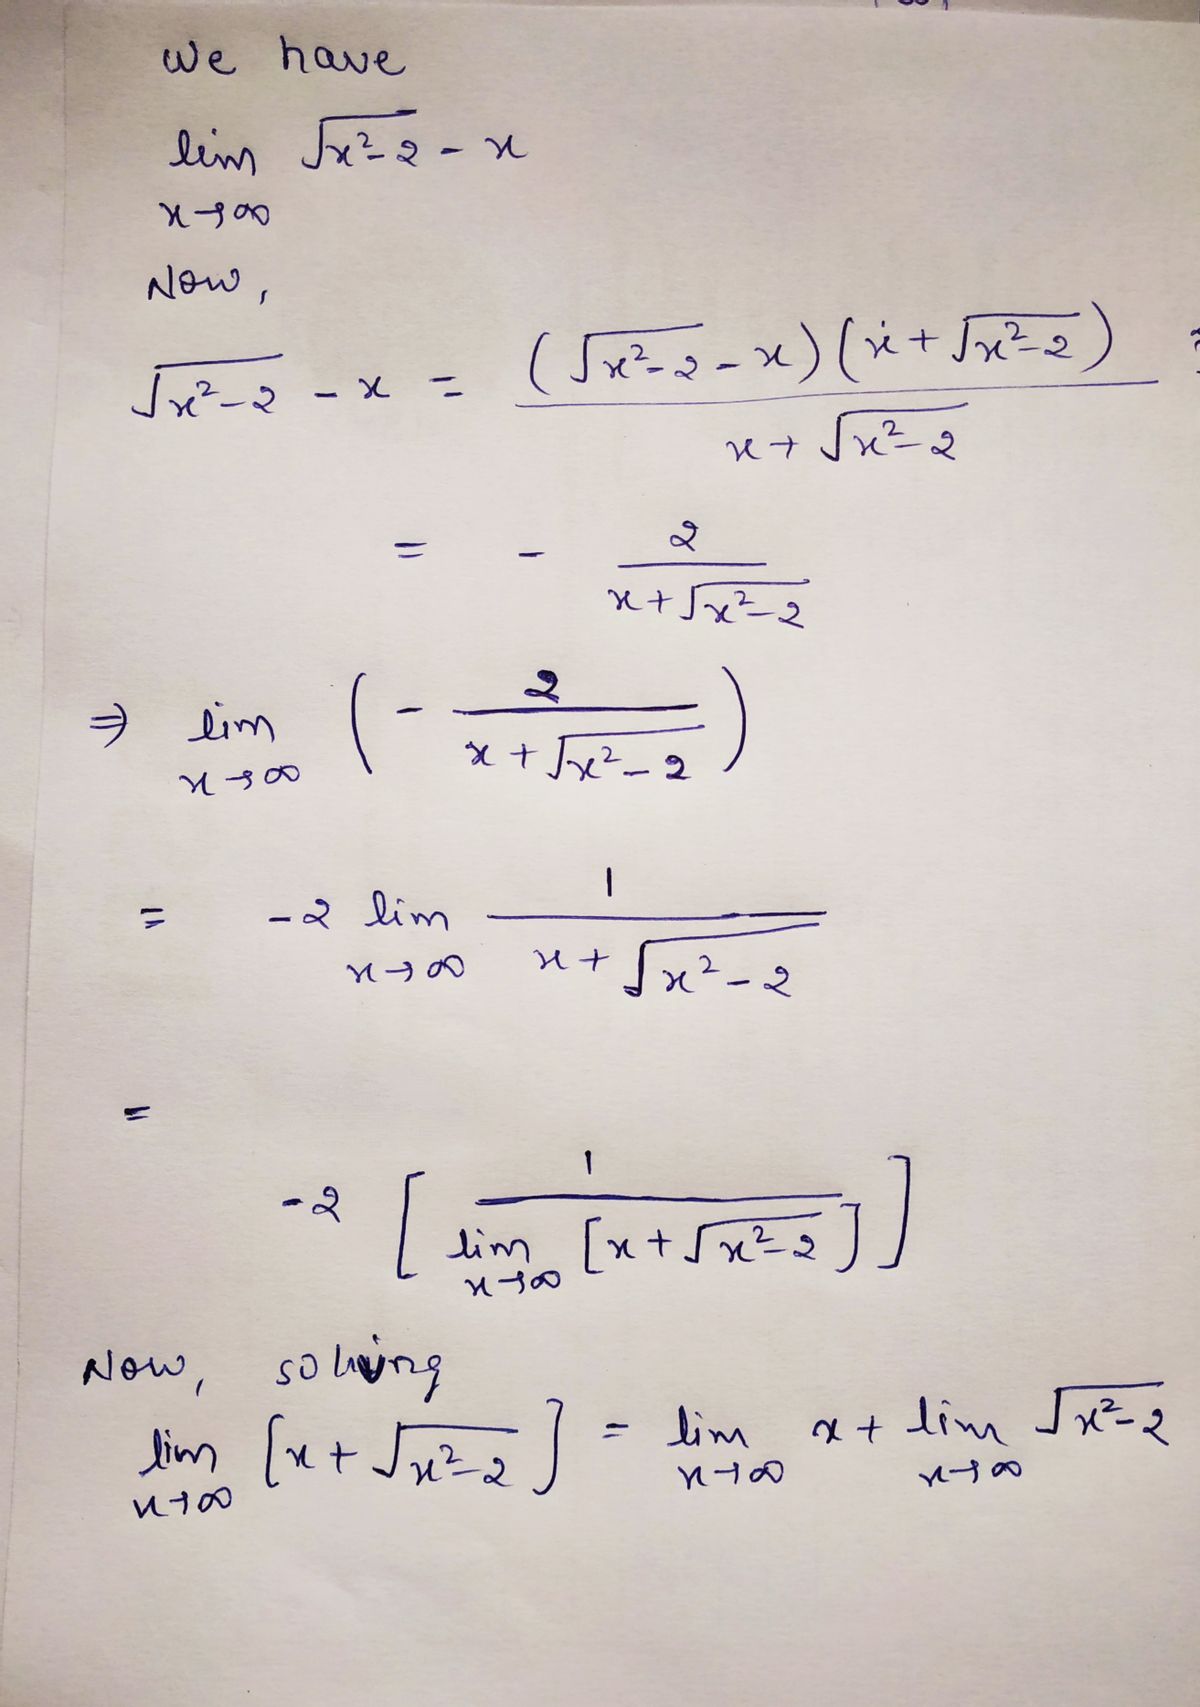 We have
lim √(x²-2) - x
x→∞
Now,
√(x²-2) - x = (√(x²-2) - x)(x + √(x²-2)) / (x + √(x²-2))
= - 2 / (x + √(x²-2))
⇒ lim x→∞ (- 2 / (x + √(x²-2)))
= -2 lim x→∞ 1 / (x + √(x²-2))
=
-2 [1 / (lim x→∞ [x + √(x²-2)])]
Now, solving
lim x→∞ [x + √(x²-2)] = lim x→∞ x + lim x→∞ √(x²-2)